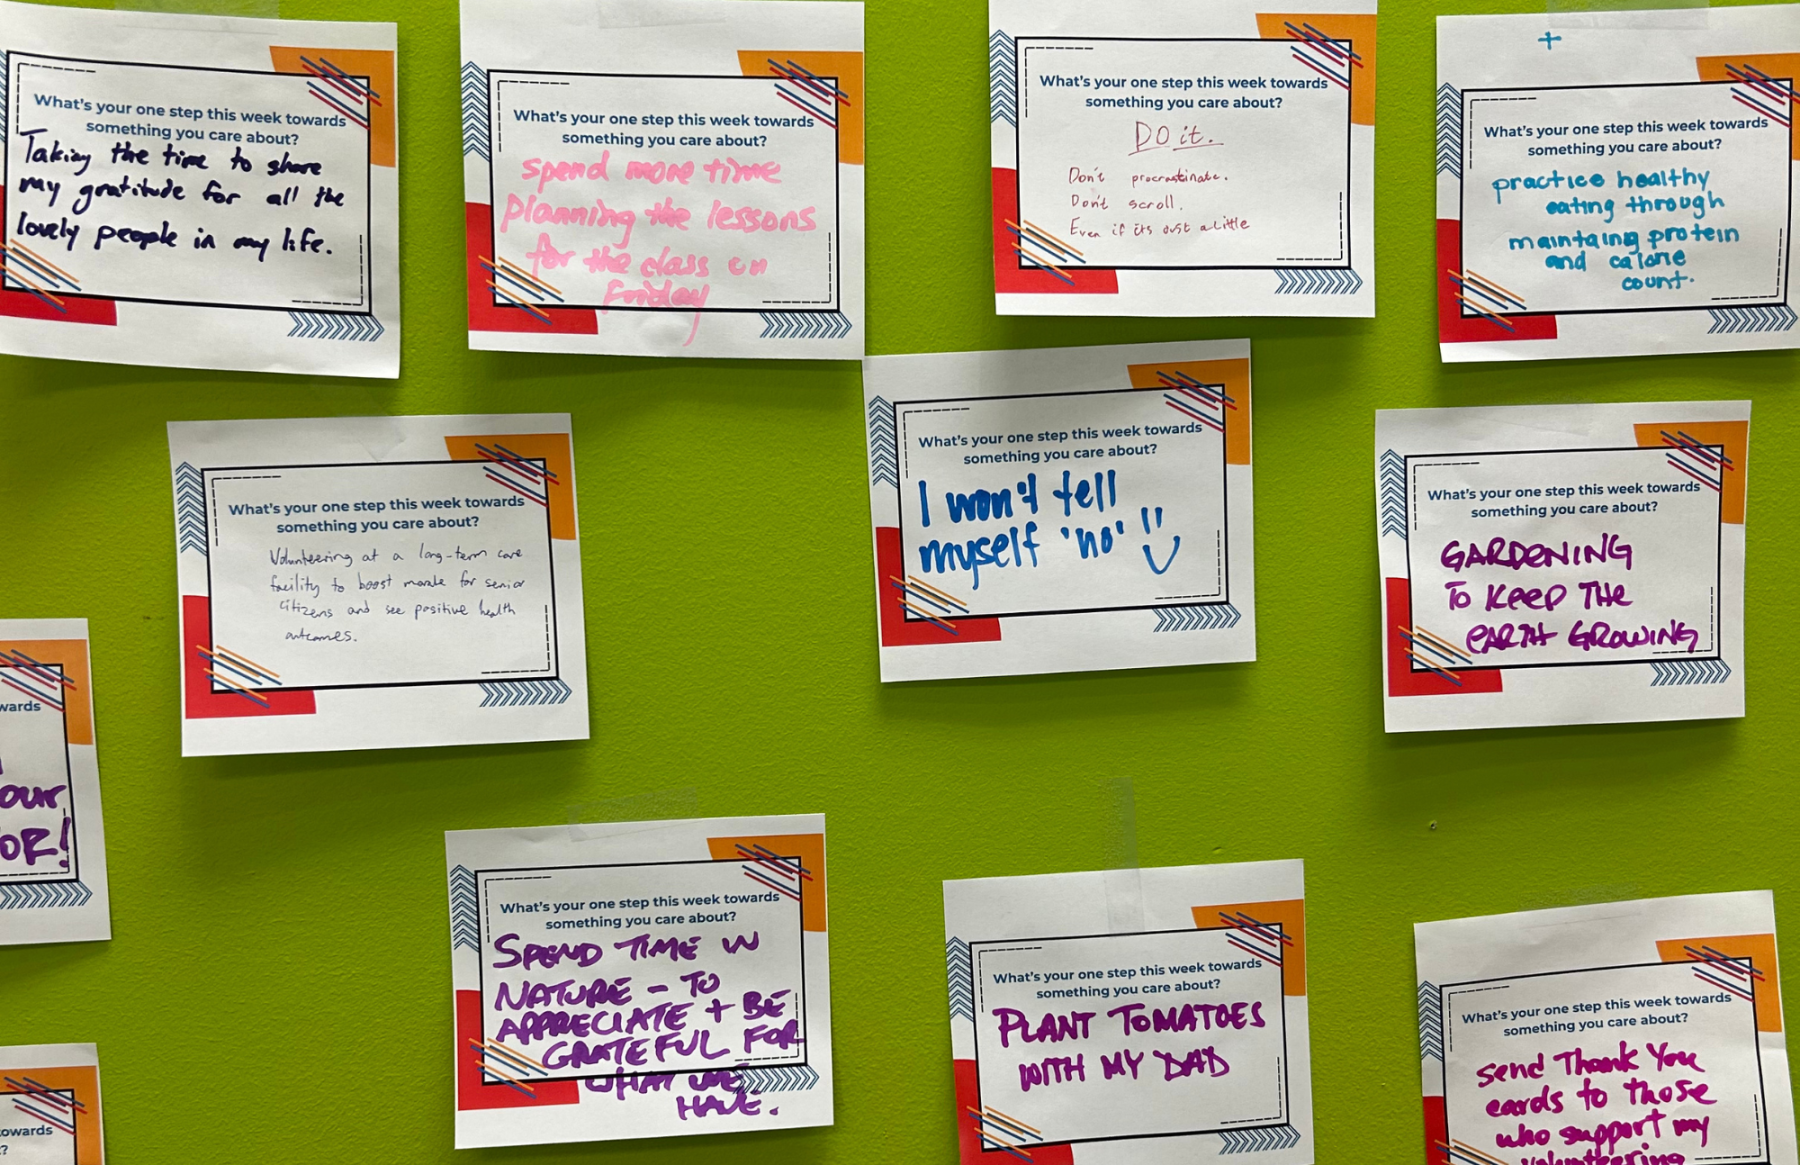 What's your one step this week towards
something you care about?
Taking the time to share
my gratitude for all the
lovely people in my life.
What's your one step this week towards
something you care about?
spend more time
planning the lessons
for the class on
Friday
What's your one step this week towards
something you care about?
DO it.
Don't procrastinate.
Don't scroll.
Even if its just a little
+
What's your one step this week towards
something you care about?
practice healthy
eating through
maintaing protein
and calorie
count.
What's your one step this week towards
something you care about?
Volunteering at a long-term care
facility to boost morale for senior
citizens and see positive health
outcomes.
What's your one step this week towards
something you care about?
I won't tell
myself 'no' !!
What's your one step this week towards
something you care about?
GARDENING
TO KEEP THE
EARTH GROWING
wards
our
OR!
What's your one step this week towards
something you care about?
SPEND TIME IN
NATURE - TO
APPRECIATE + BE
GRATEFUL FOR
WHAT WE
HAVE.
What's your one step this week towards
something you care about?
PLANT TOMATOES
WITH MY DAD
What's your one step this week towards
something you care about?
send Thank You
cards to those
who support my
volunteering
owards
?